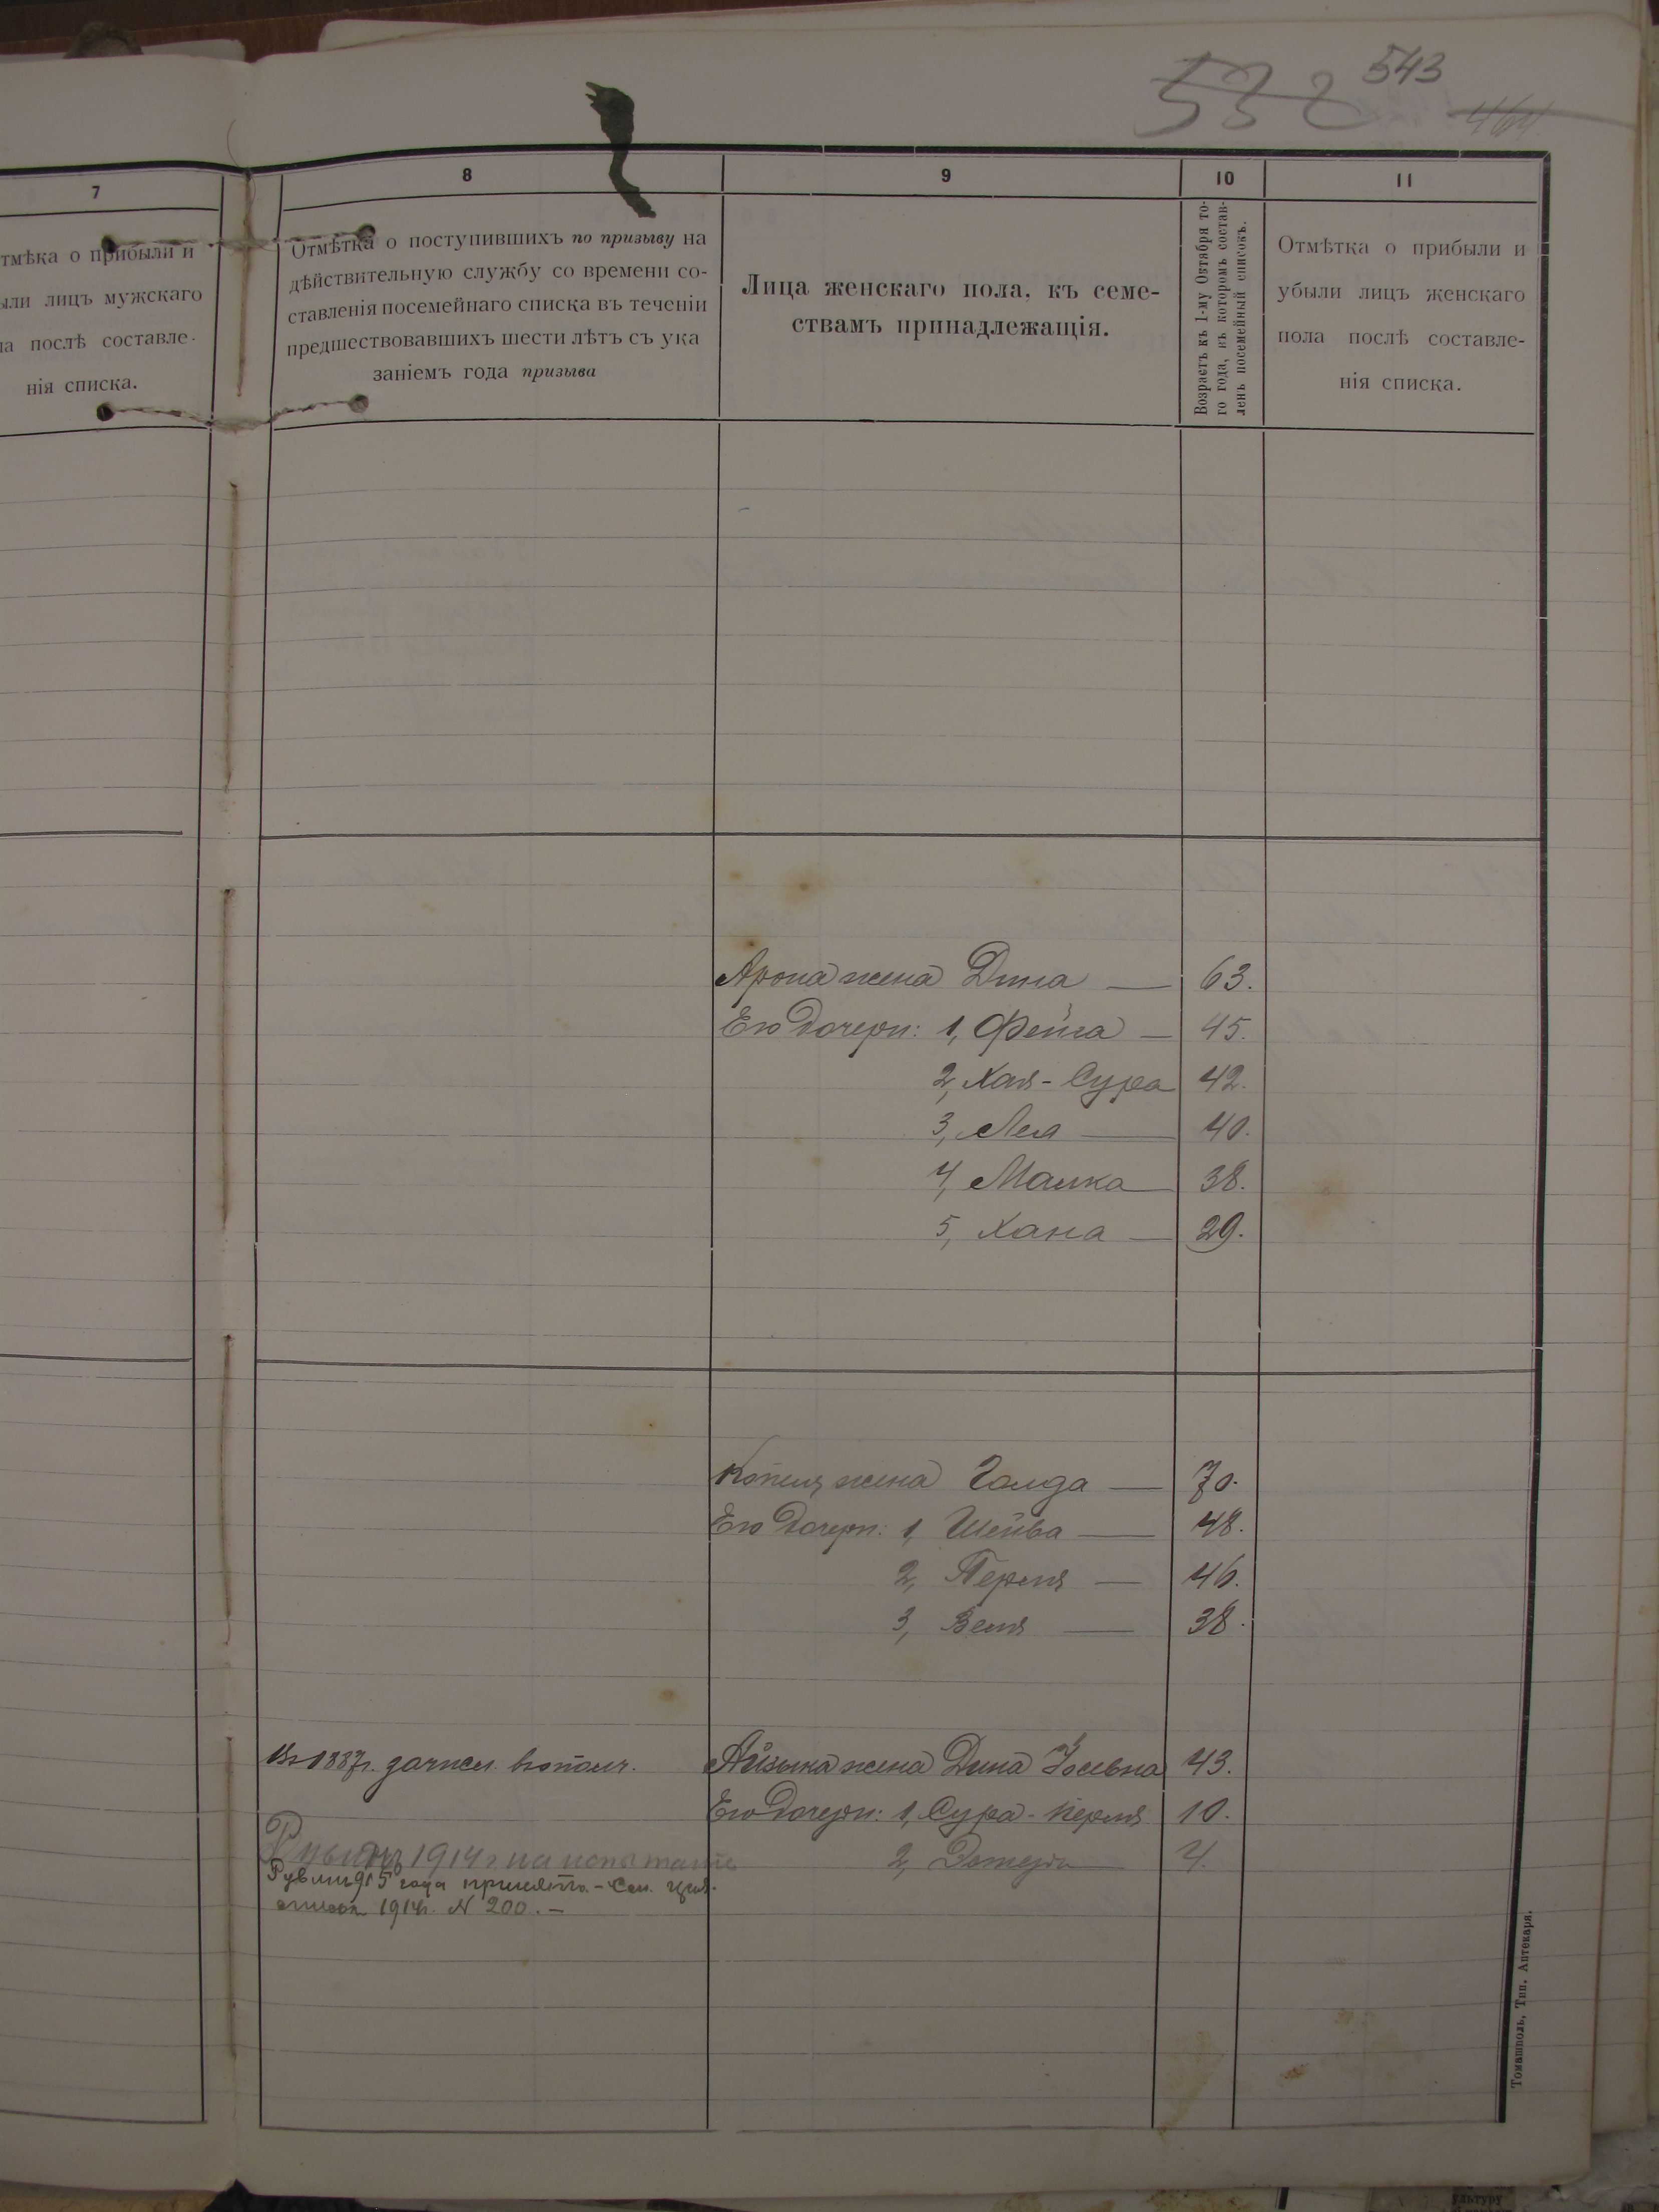 532 543
464
7
8
9
10
11
тмѣка о прибыли и
ыли лицъ мужскаго
ла послѣ составле-
нія списка.
Отмѣтка о поступившихъ по призыву на
дѣйствительную службу со времени со-
ставленія посемейнаго списка въ теченіи
предшествовавшихъ шести лѣтъ съ ука
заніемъ года призыва
Лица женскаго пола, къ семе-
ствамъ принадлежащія.
Возрастъ къ 1-му Октября то-
го года, въ которомъ состав-
ленъ посемейный списокъ.
Отмѣтка о прибыли и
убыли лицъ женскаго
пола послѣ составле-
нія списка.
Арона жена Дина — 63.
Его дочери: 1, Фейга — 45.
2, Хая-Сура 42.
3, Лея — 40.
4, Малка — 38.
5, Хана — 29.
жена Голда — 70.
Его дочери: 1, Шейва — 48.
2, Перля — 46.
3, Зеля — 38.
Въ 1887г. зачисл. въ ополч.
Айзыка жена Дина 43.
Его дочери: 1, Сура-Перля 10.
2, Эстеръ 4.
1914 г. на испытаніе
915 года принятъ. – См.
1914г. N 200. –
Томашполь, Тип. Аптекаря.